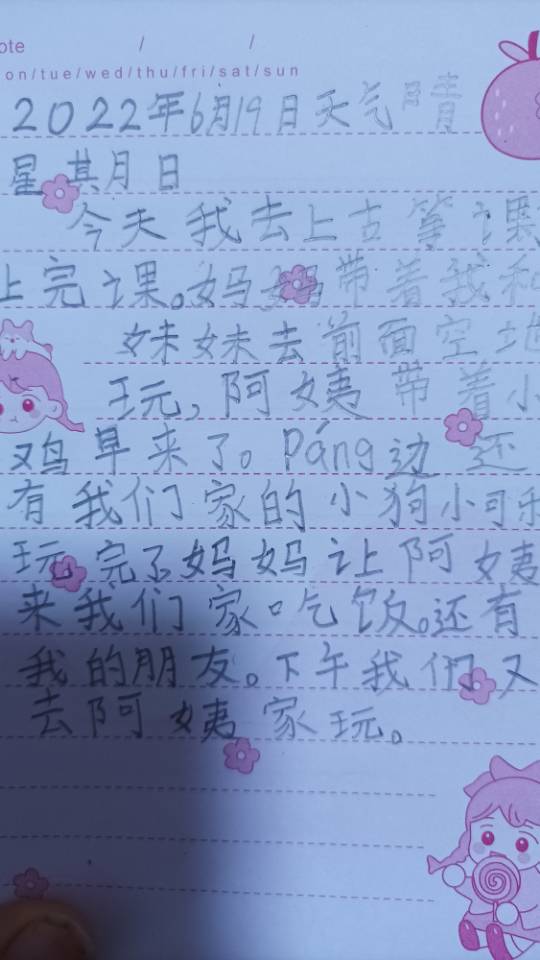 ote / /
on/tue/wed/thu/fri/sat/sun
2022年6月19日天气晴
星其月日
今天我去上古筝课
上完课。妈妈带着我和
妹妹去前面空地
玩,阿姨带着小
鸡早来了。páng边还
有我们家的小狗小可
玩完了妈妈让阿姨
来我们家吃饭。还有
我的朋友。下午我们又
去阿姨家玩。